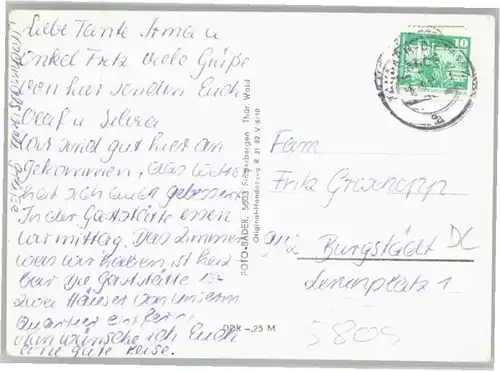 Liebe Tante Irma u
Onkel Fritz viele Grüße
von hier senden Euch
Olaf u Silvia
Wir sind gut hier an
gekommen, das Wetter
hat sich auch gebessert
In der Gaststätte essen
wir mittag. Das Zimmer
was wir haben, ist heiz
bar Die Gaststätte ist
zwei Häuser von unserm
Quartier entfernt
Nun wünsche ich Euch
eine gute Reise.
FOTO-BÄDER, 5803 Finsterbergen Thür Wald
Original-Handabzug R 31 82 V 6/10
DDR -,25 M
10
Fam.
Fritz Groschopp
9112 Burgstädt DL
Leninplatz 1
5809